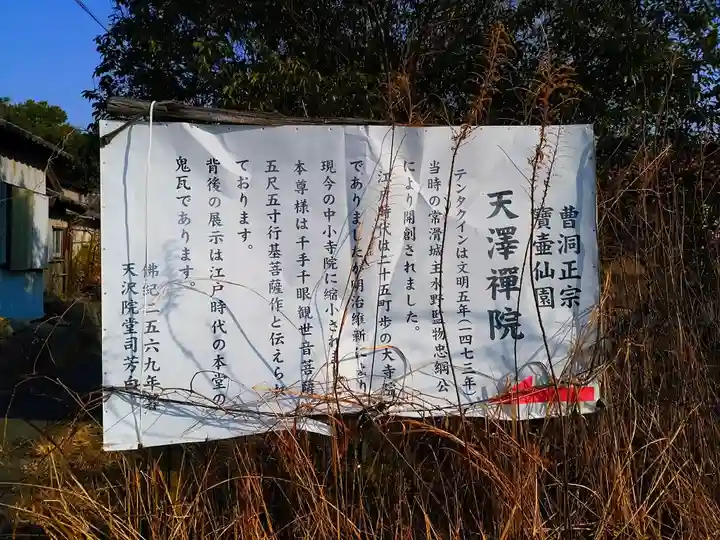 曹洞正宗
寶壺仙園
天澤禪院
テンタクインは文明五年(一四七三年)
当時の常滑城主水野監物忠綱公
により開創されました。
江戸時代は二十五町歩の大寺院
でありましたが明治維新により
現今の中小寺院に縮小されま
本尊様は千手千眼観世音菩薩
五尺五寸行基菩薩作と伝えられ
ております。
背後の展示は江戸時代の本堂の
鬼瓦であります。
佛紀二五六九年
天沢院堂司芳白